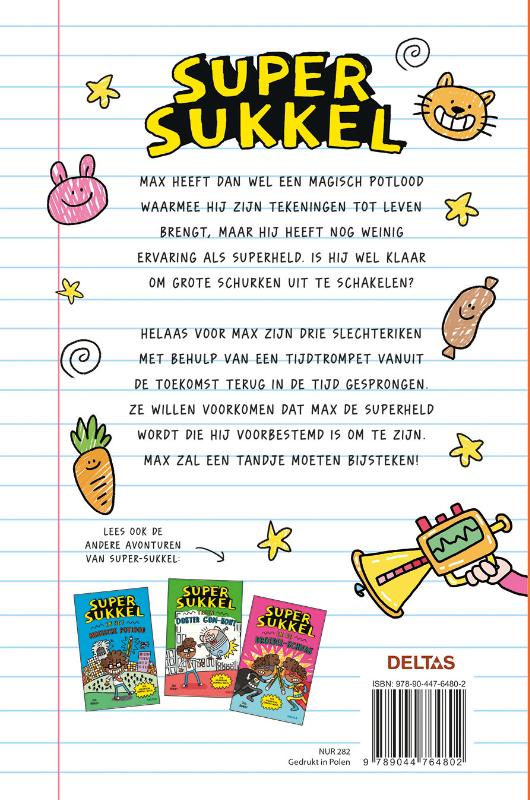 SUPER
SUKKEL
MAX HEEFT DAN WEL EEN MAGISCH POTLOOD
WAARMEE HIJ ZIJN TEKENINGEN TOT LEVEN
BRENGT, MAAR HIJ HEEFT NOG WEINIG
ERVARING ALS SUPERHELD. IS HIJ WEL KLAAR
OM GROTE SCHURKEN UIT TE SCHAKELEN?
HELAAS VOOR MAX ZIJN DRIE SLECHTERIKEN
MET BEHULP VAN EEN TIJDTROMPET VANUIT
DE TOEKOMST TERUG IN DE TIJD GESPRONGEN.
ZE WILLEN VOORKOMEN DAT MAX DE SUPERHELD
WORDT DIE HIJ VOORBESTEMD IS OM TE ZIJN.
MAX ZAL EEN TANDJE MOETEN BIJSTEKEN!
LEES OOK DE
ANDERE AVONTUREN
VAN SUPER-SUKKEL:
SUPER
SUKKEL
MAGISCHE POTLOOD
SUPER
SUKKEL
SUPER
SUKKEL
DELTAS
ISBN: 978-90-447-6480-2
9 789044 764802
NUR 282
Gedrukt in Polen